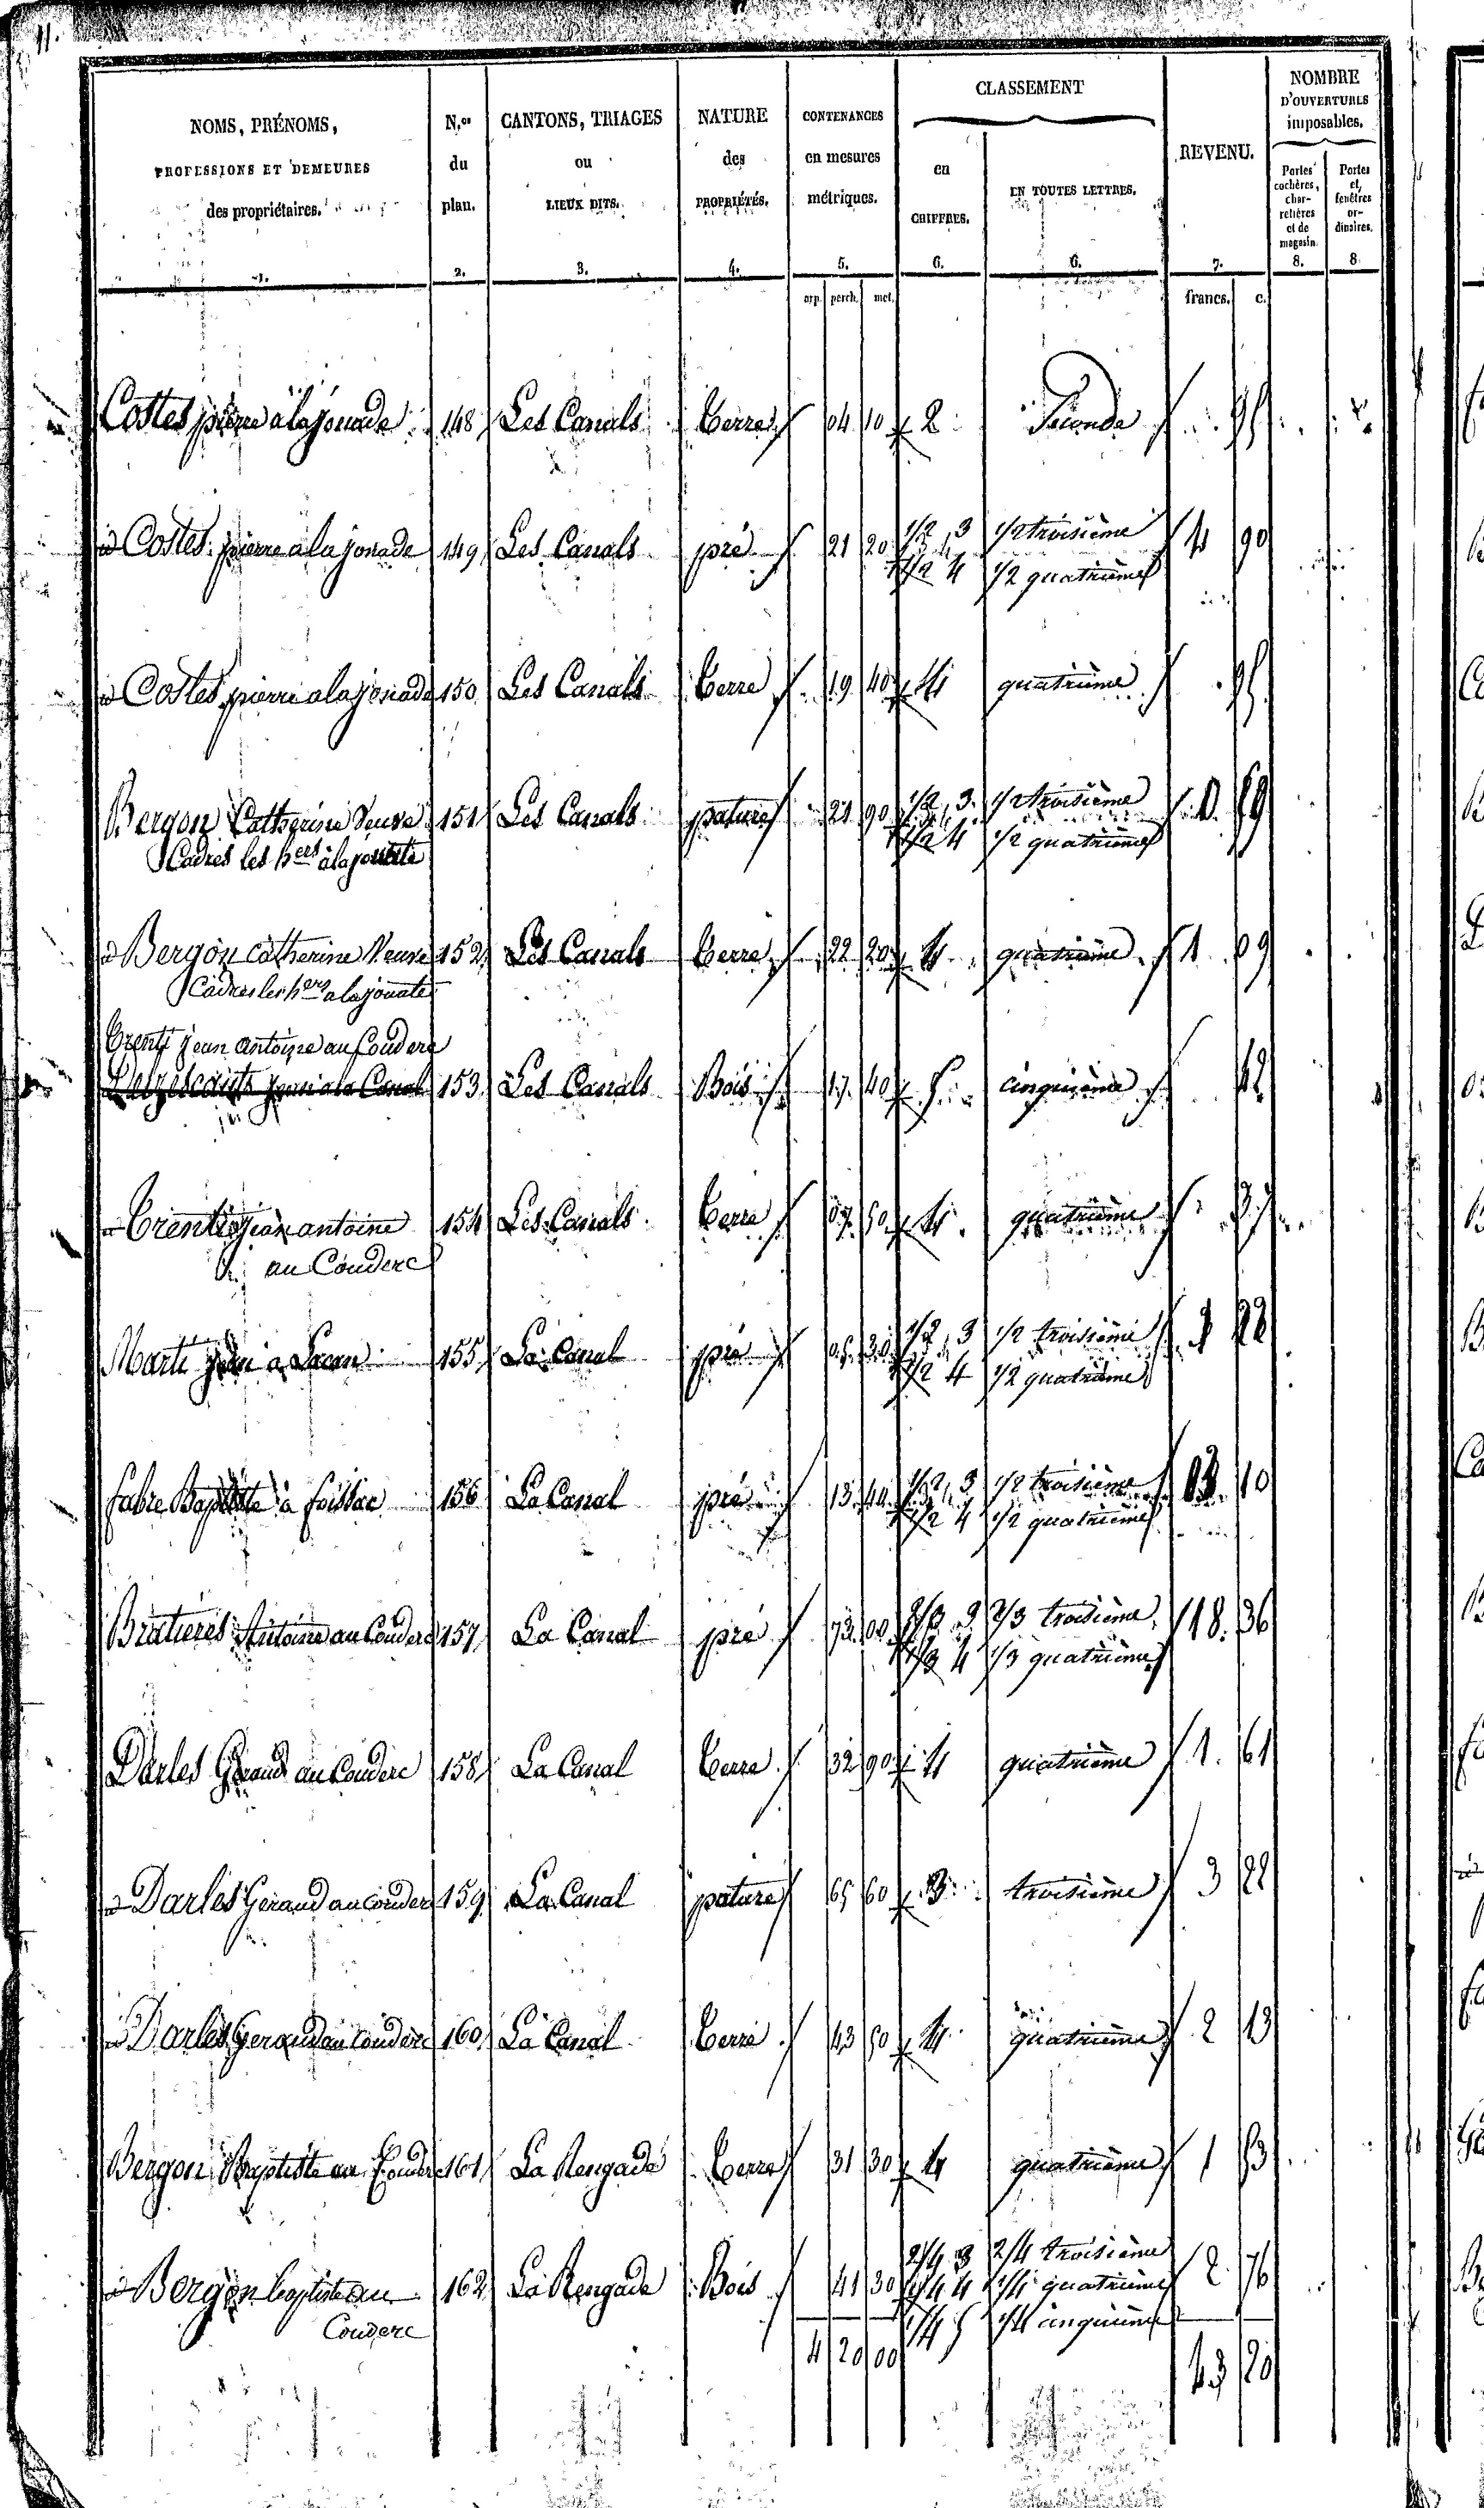 11.
NOMS, PRÉNOMS, PROFESSIONS ET DEMEURES des propriétaires. | N.os du plan. | CANTONS, TRIAGES ou LIEUX DITS. | NATURE des PROPRIÉTÉS. | CONTENANCES en mesures métriques. | CLASSEMENT en CHIFFRES. | EN TOUTES LETTRES. | REVENU. | NOMBRE D'OUVERTURES imposables. Portes cochères, charretières et de magasin. | Portes et fenêtres ordinaires.
1. | 2. | 3. | 4. | 5. | 6. | 6. | 7. | 8. | 8.
arp. perch. met. | francs. c.
Costes pierre à la jonade 148 Les Canals terre 04 10 2 Seconde
Costes pierre a la jonade 149 Les Canals pré 21 20 1/2 3 1/2 troisième 4 90
1/2 4 1/2 quatrième
Costes pierre a la jonade 150 Les Canals terre 19 40 4 quatrième
Bergon Catherine Veuve 151 Les Canals pature 21 90 1/2 3 1/2 troisième
Cadres les hers à la 1/2 4 1/2 quatrième
Bergon Catherine Veuve 152 Les Canals terre 22 20 4 quatrième 1 09
Cadres les hers a la jonate
jean antoine au Couderc
153 Les Canals Bois 17 40 5 cinquième
jean antoine 154 Les Canals terre 07 50 4 quatrième 37
au Couderc
Marti jean a 155 La Canal pré 30 1/2 3 1/2 troisième
1/2 4 1/2 quatrième
fabre Baptiste à foissac 156 La Canal pré 13 44 1/2 3 1/2 troisième 10
1/2 4 1/2 quatrième
Bratières Antoine au Couderc 157 La Canal pré 73 00 2/3 3 2/3 troisième 18 36
1/3 4 1/3 quatrième
Darles Geraud au Couderc 158 La Canal terre 32 90 4 quatrième 1 61
Darles Geraud au Couderc 159 La Canal pature 65 60 3 troisième 3 28
Darles Geraud au Couderc 160 La Canal terre 43 50 4 quatrième 2 13
Bergon Baptiste au Couderc 161 La Rengade terre 31 30 4 quatrième 1 53
Bergon baptiste au 162 La Rengade Bois 41 30 2/4 3 2/4 troisième 2 76
1/4 4 1/4 quatrième
Couderc 1/4 5 1/4 cinquième
4 20 00 43 20